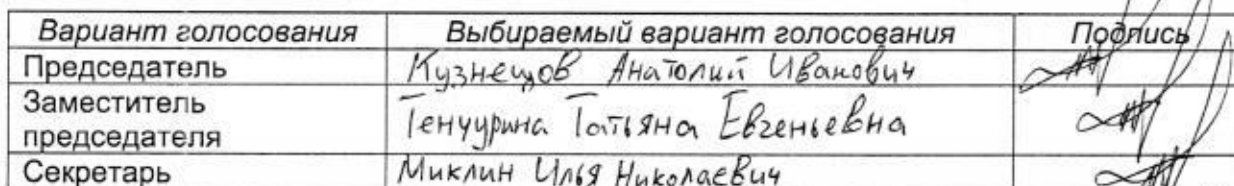 Вариант голосования Выбираемый вариант голосования Подпись
Председатель Кузнецов Анатолий Иванович
Заместитель
председателя Тенчурина Татьяна Евгеньевна
Секретарь Миклин Илья Николаевич